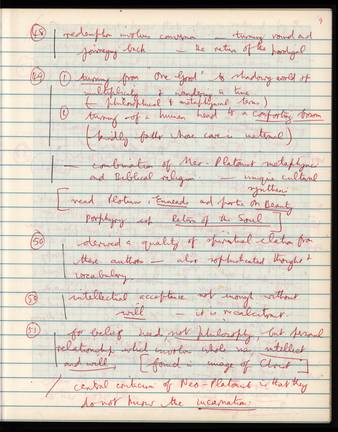 9
(48) redemption involves conversion — turning round and
journeying back — the return of the prodigal
(49) (1) turning from 'One Good' to shadowy world of
multiplicity & wandering in time
(– philosophical & metaphysical terms)
(2) turning of a human head to a comforting bosom
(kindly father whose care is maternal)
— combination of Neo-Platonist metaphysic
and Biblical religion — unique cultural
synthesis
[read Plotinus, Enneads and parts on Beauty
Porphyry esp Return of the Soul]
(50) derived a quality of spiritual elation from
these authors — also sophisticated thought &
vocabulary
(50) intellectual acceptance not enough without
will — it is recalcitrant.
(51) for belief need, not philosophy, but personal
relationship which involves whole man, intellect
and will [found in image of Christ]
/ central criticism of Neo-Platonists is that they
do not know the incarnation